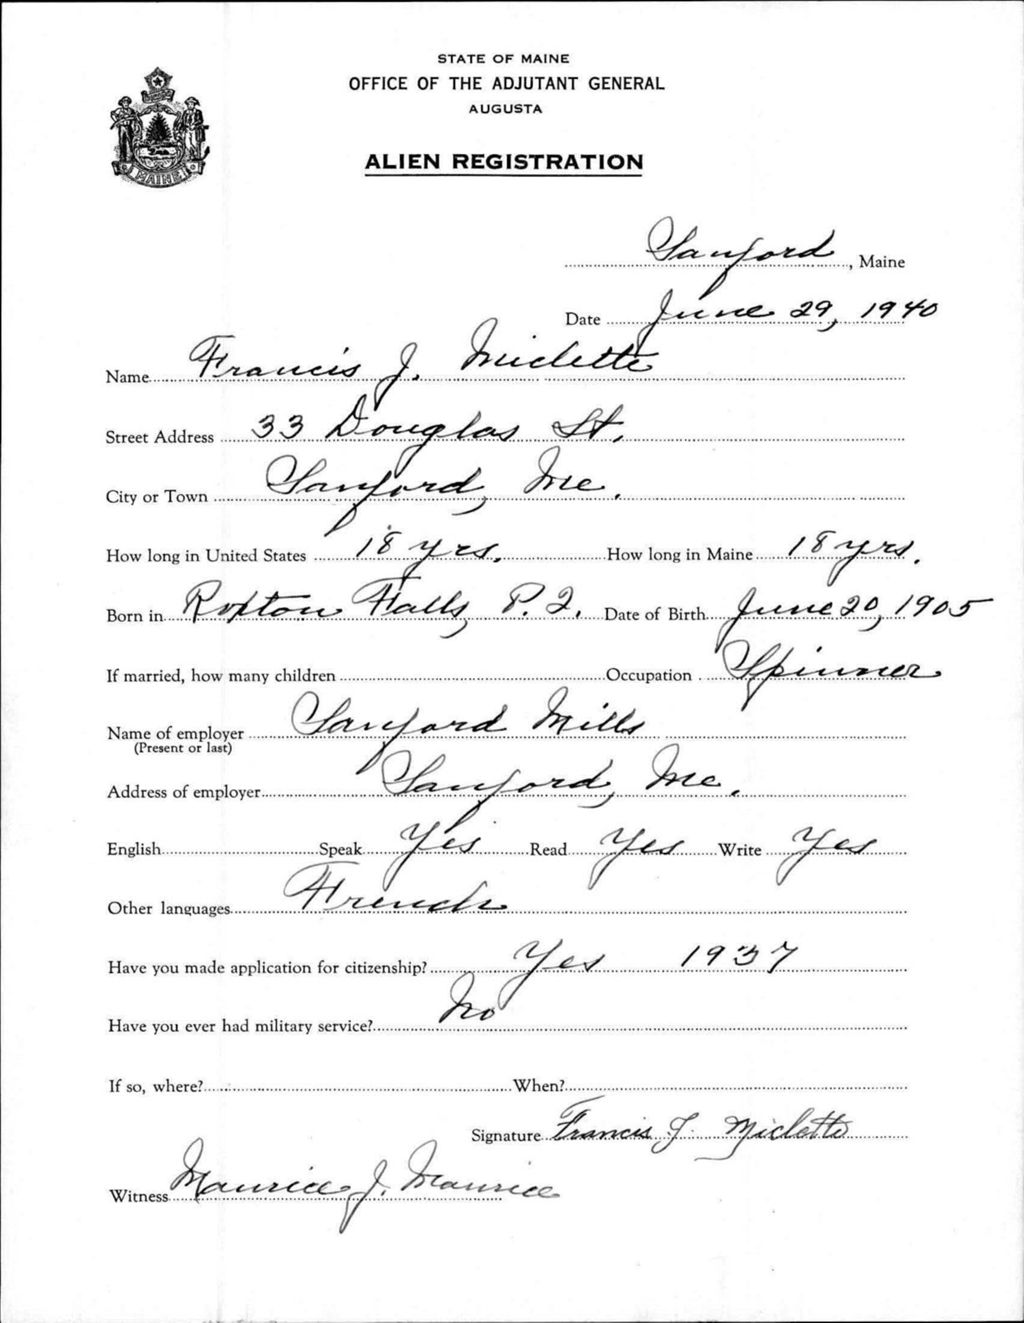 STATE OF MAINE
OFFICE OF THE ADJUTANT GENERAL
AUGUSTA
ALIEN REGISTRATION
MAINE
Sanford, Maine
Date June 29, 1940
Name Francis J. Miclette
Street Address 33 Douglas St.
City or Town Sanford, Me.
How long in United States 18 yrs. How long in Maine 18 yrs.
Born in Roxton Falls, P. Q. Date of Birth June 20, 1905
If married, how many children Occupation Spinner
Name of employer Sanford Mills
(Present or last)
Address of employer Sanford, Me.
English Speak Yes Read Yes Write Yes
Other languages French
Have you made application for citizenship? Yes 1937
Have you ever had military service? No
If so, where? When?
Signature Francis J. Miclette
Witness Maurice J. Maurice